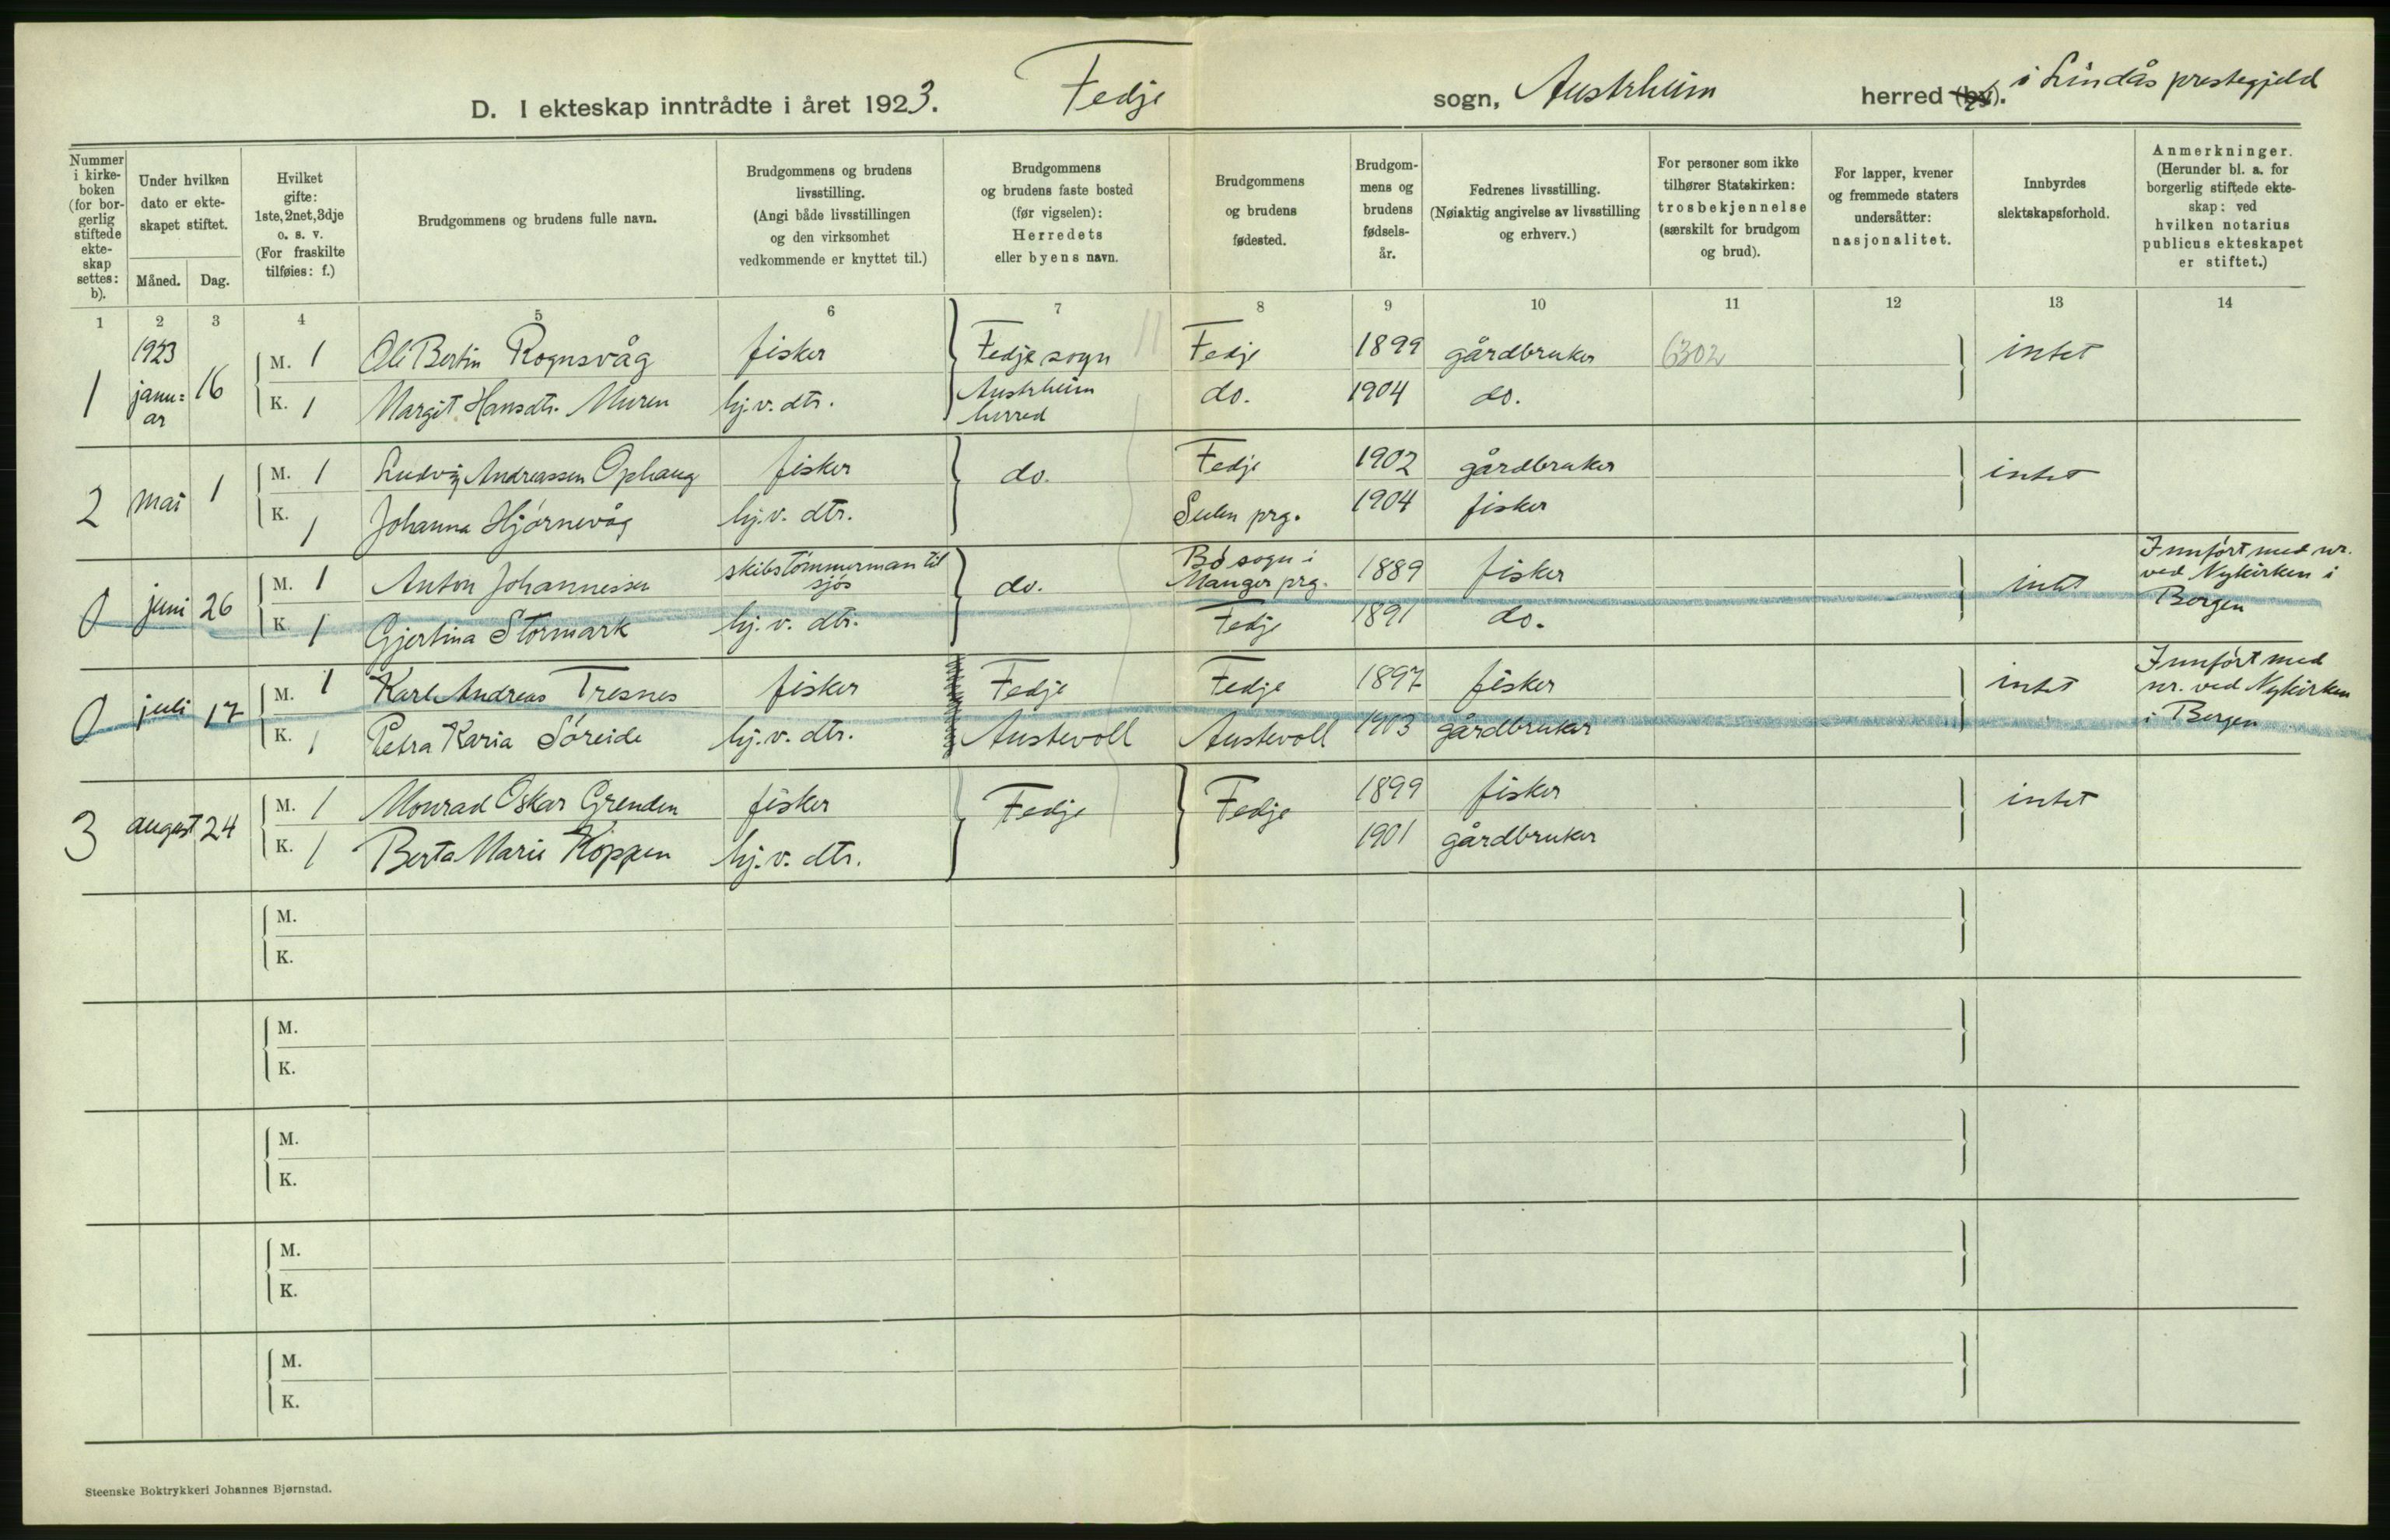 D. I ekteskap inntrådte i året 1923. Fedje sogn, Austrheim herred (by). i Lindås prestegjeld
Nummer i kirkeboken (for borgerlig stiftede ekteskap settes: b).
Under hvilken dato er ekteskapet stiftet.
Måned. Dag.
Hvilket gifte: 1ste, 2net, 3dje o. s. v. (For fraskilte tilføies: f.)
Brudgommens og brudens fulle navn.
Brudgommens og brudens livsstilling. (Angi både livsstillingen og den virksomhet vedkommende er knyttet til.)
Brudgommens og brudens faste bosted (før vigselen): Herredets eller byens navn.
Brudgommens og brudens fødested.
Brudgommens og brudens fødselsår.
Fedrenes livsstilling. (Nøiaktig angivelse av livsstilling og erhverv.)
For personer som ikke tilhører Statskirken: trosbekjennelse (særskilt for brudgom og brud).
For lapper, kvener og fremmede staters undersåtter: nasjonalitet.
Innbyrdes slektskapsforhold.
Anmerkninger. (Herunder bl. a. for borgerlig stiftede ekteskap: ved hvilken notarius publicus ekteskapet er stiftet.)
1 2 3 4 5 6 7 8 9 10 11 12 13 14
1 1923 januar 16 M. 1 Ole Bertin Rognsvåg fisker Fedje sogn Fedje 1899 gårdbruker 6302 intet
K. 1 Margit Hansdtr. Muren hj.v. dtr. Austrheim herred do. 1904 do.
2 mai 1 M. 1 Ludvig Andreassen Ophaug fisker do. Fedje 1902 gårdbruker intet
K. 1 Johanna Hjørnevåg hj.v. dtr. Sulen prg. 1904 fisker
0 juni 26 M. 1 Anton Johannessen skibstømmerman til sjøs do. Bø sogn i Manger prg. 1889 fisker intet Innført med nr. ved Nykirken i Bergen
K. 1 Gjertina Stormark hj.v. dtr. Fedje 1891 do.
0 juli 17 M. 1 Karl Andreas Tresnes fisker Fedje Fedje 1897 fisker intet Innført med nr. ved Nykirken i Bergen
K. 1 Petra Karia Søreide hj.v. dtr. Austevoll Austevoll 1903 gårdbruker
3 august 24 M. 1 Monrad Oskar Grenden fisker Fedje Fedje 1899 fisker intet
K. 1 Berta Marie Koppen hj.v. dtr. 1901 gårdbruker
M.
K.
M.
K.
M.
K.
M.
K.
M.
K.
Steenske Boktrykkeri Johannes Bjørnstad.